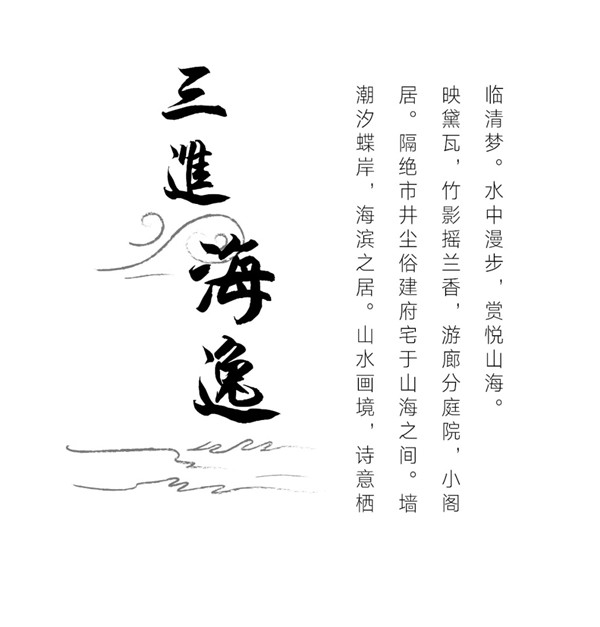 三進海逸
潮汐蝶岸，海滨之居。山水画境，诗意栖
居。隔绝市井尘俗建府宅于山海之间。墙
映黛瓦，竹影摇兰香，游廊分庭院，小阁
临清梦。水中漫步，赏悦山海。